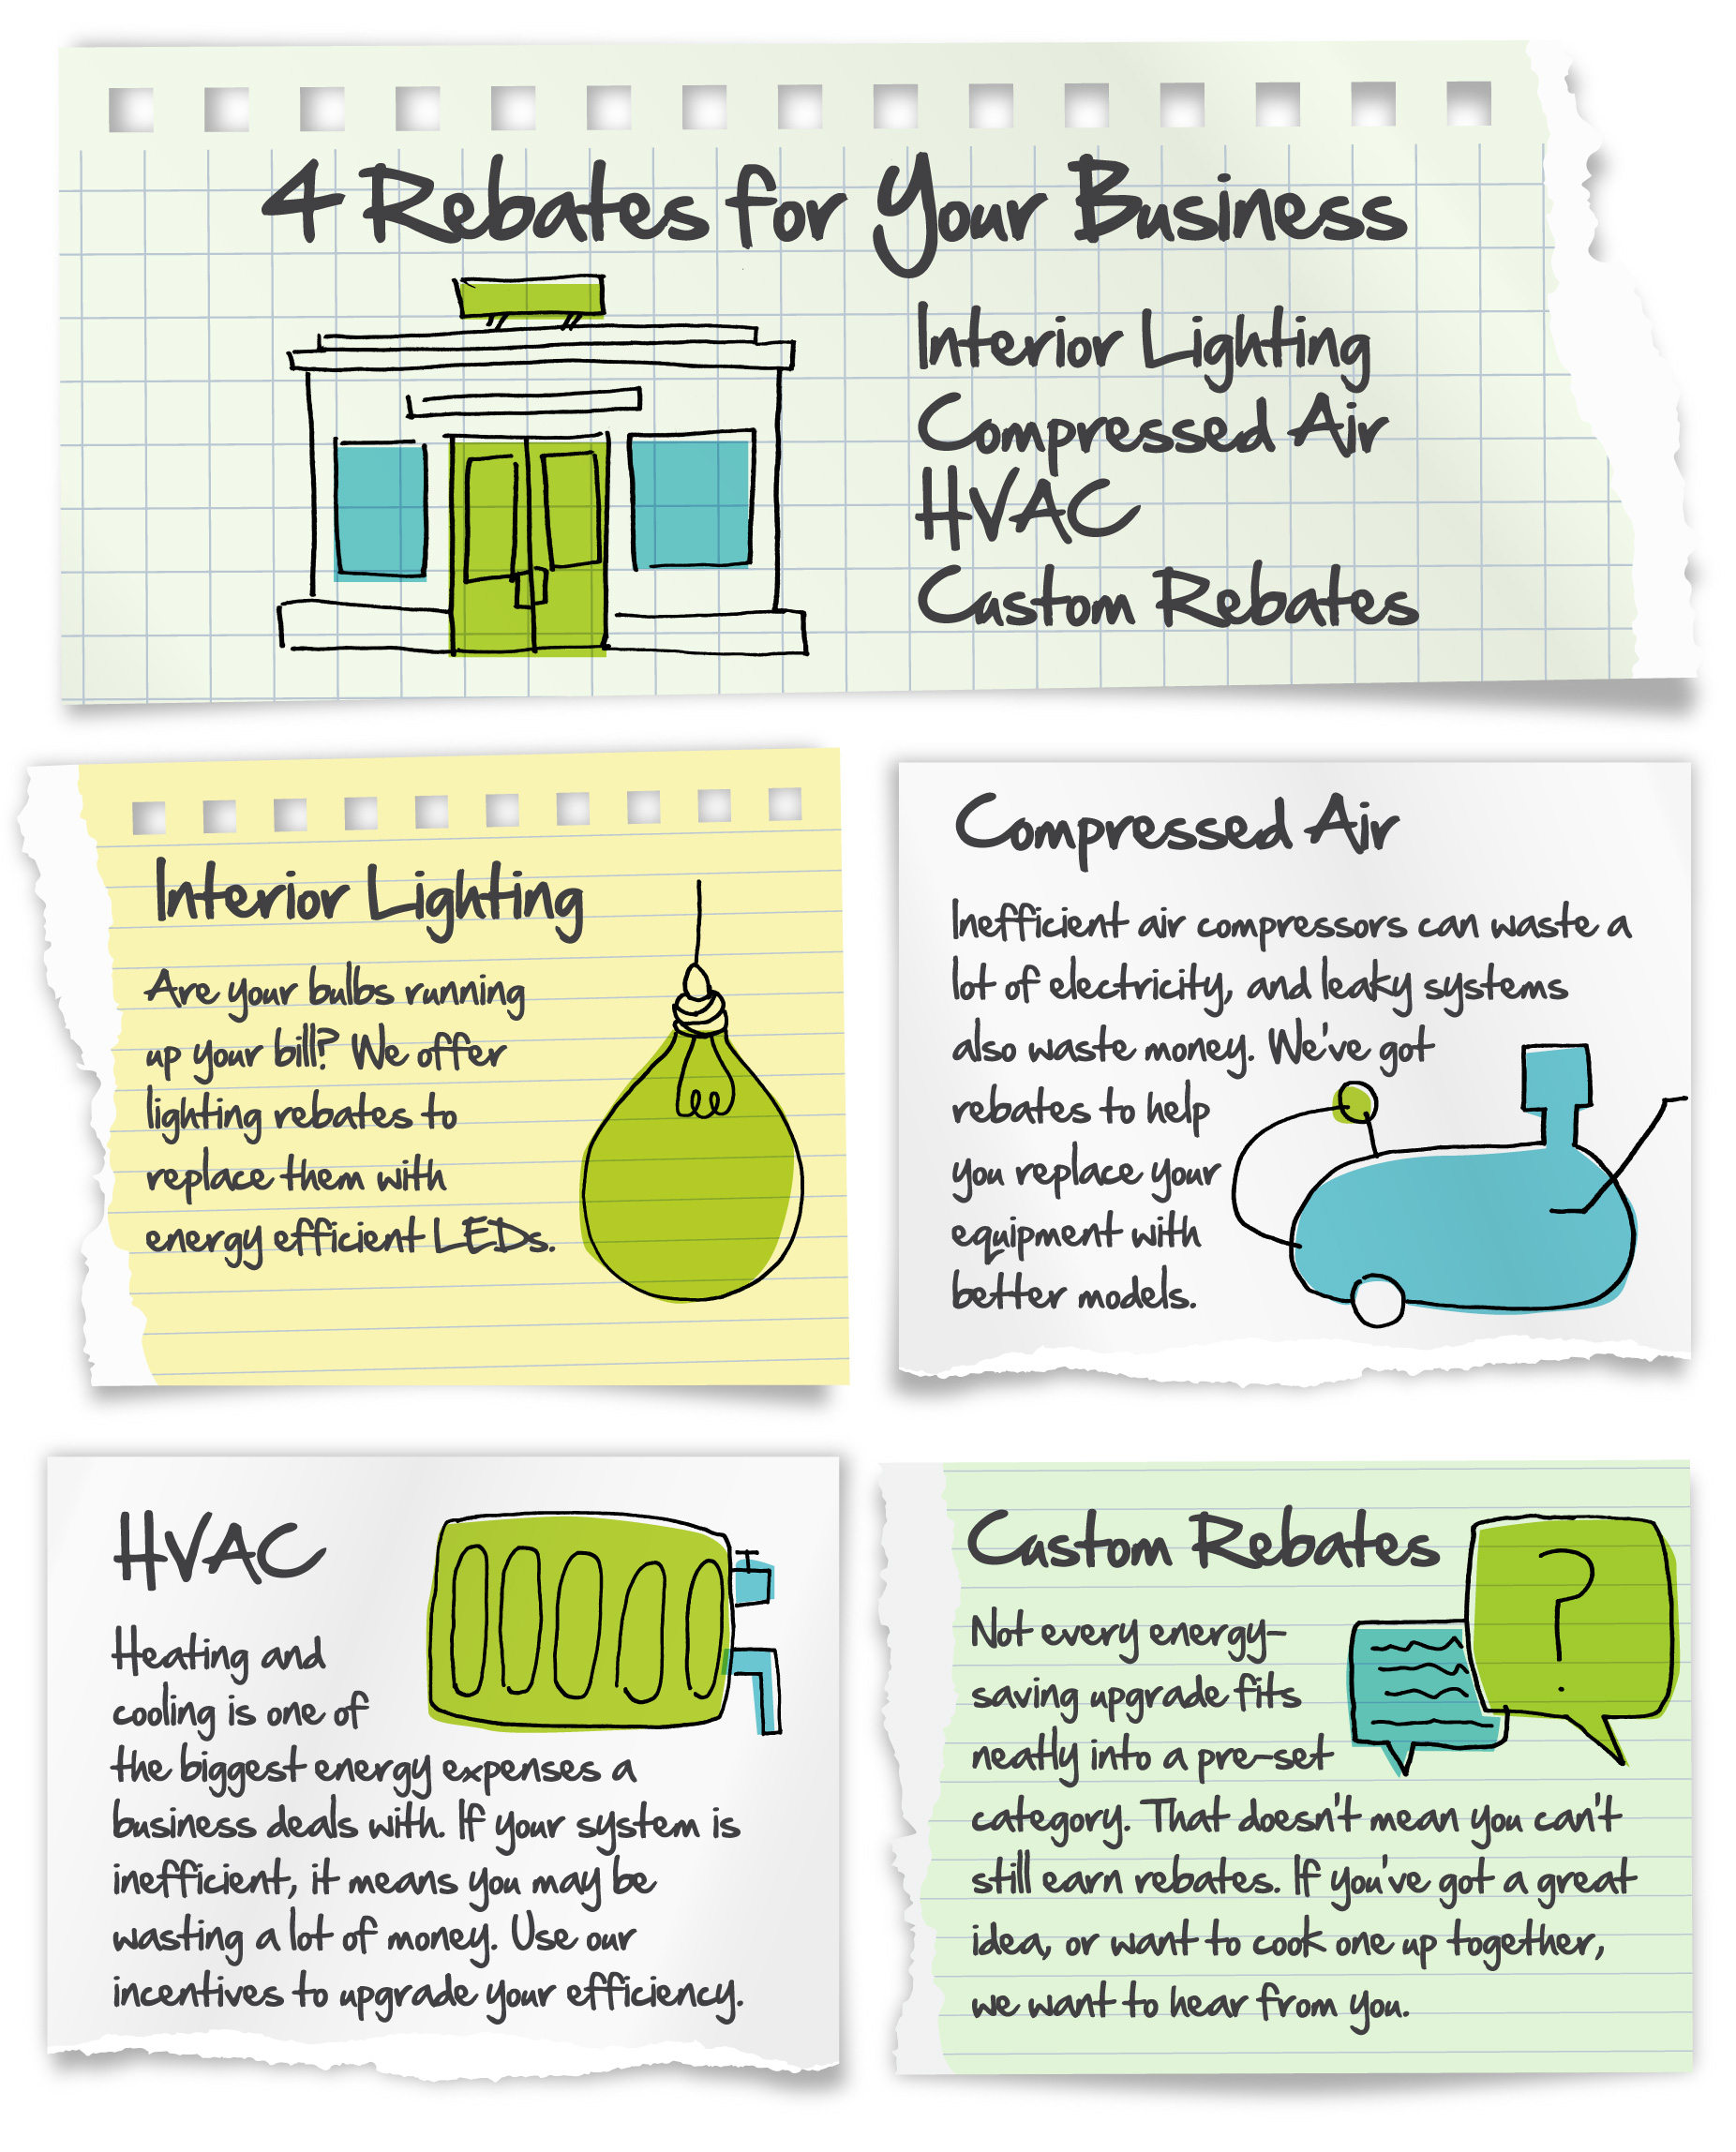 4 Rebates for Your Business
Interior Lighting
Compressed Air
HVAC
Custom Rebates
Interior Lighting
Are your bulbs running
up your bill? We offer
lighting rebates to
replace them with
energy efficient LEDs.
Compressed Air
Inefficient air compressors can waste a
lot of electricity, and leaky systems
also waste money. We've got
rebates to help
you replace your
equipment with
better models.
HVAC
Heating and
cooling is one of
the biggest energy expenses a
business deals with. If your system is
inefficient, it means you may be
wasting a lot of money. Use our
incentives to upgrade your efficiency.
Custom Rebates
Not every energy-
saving upgrade fits
neatly into a pre-set
category. That doesn't mean you can't
still earn rebates. If you've got a great
idea, or want to cook one up together,
we want to hear from you.
?